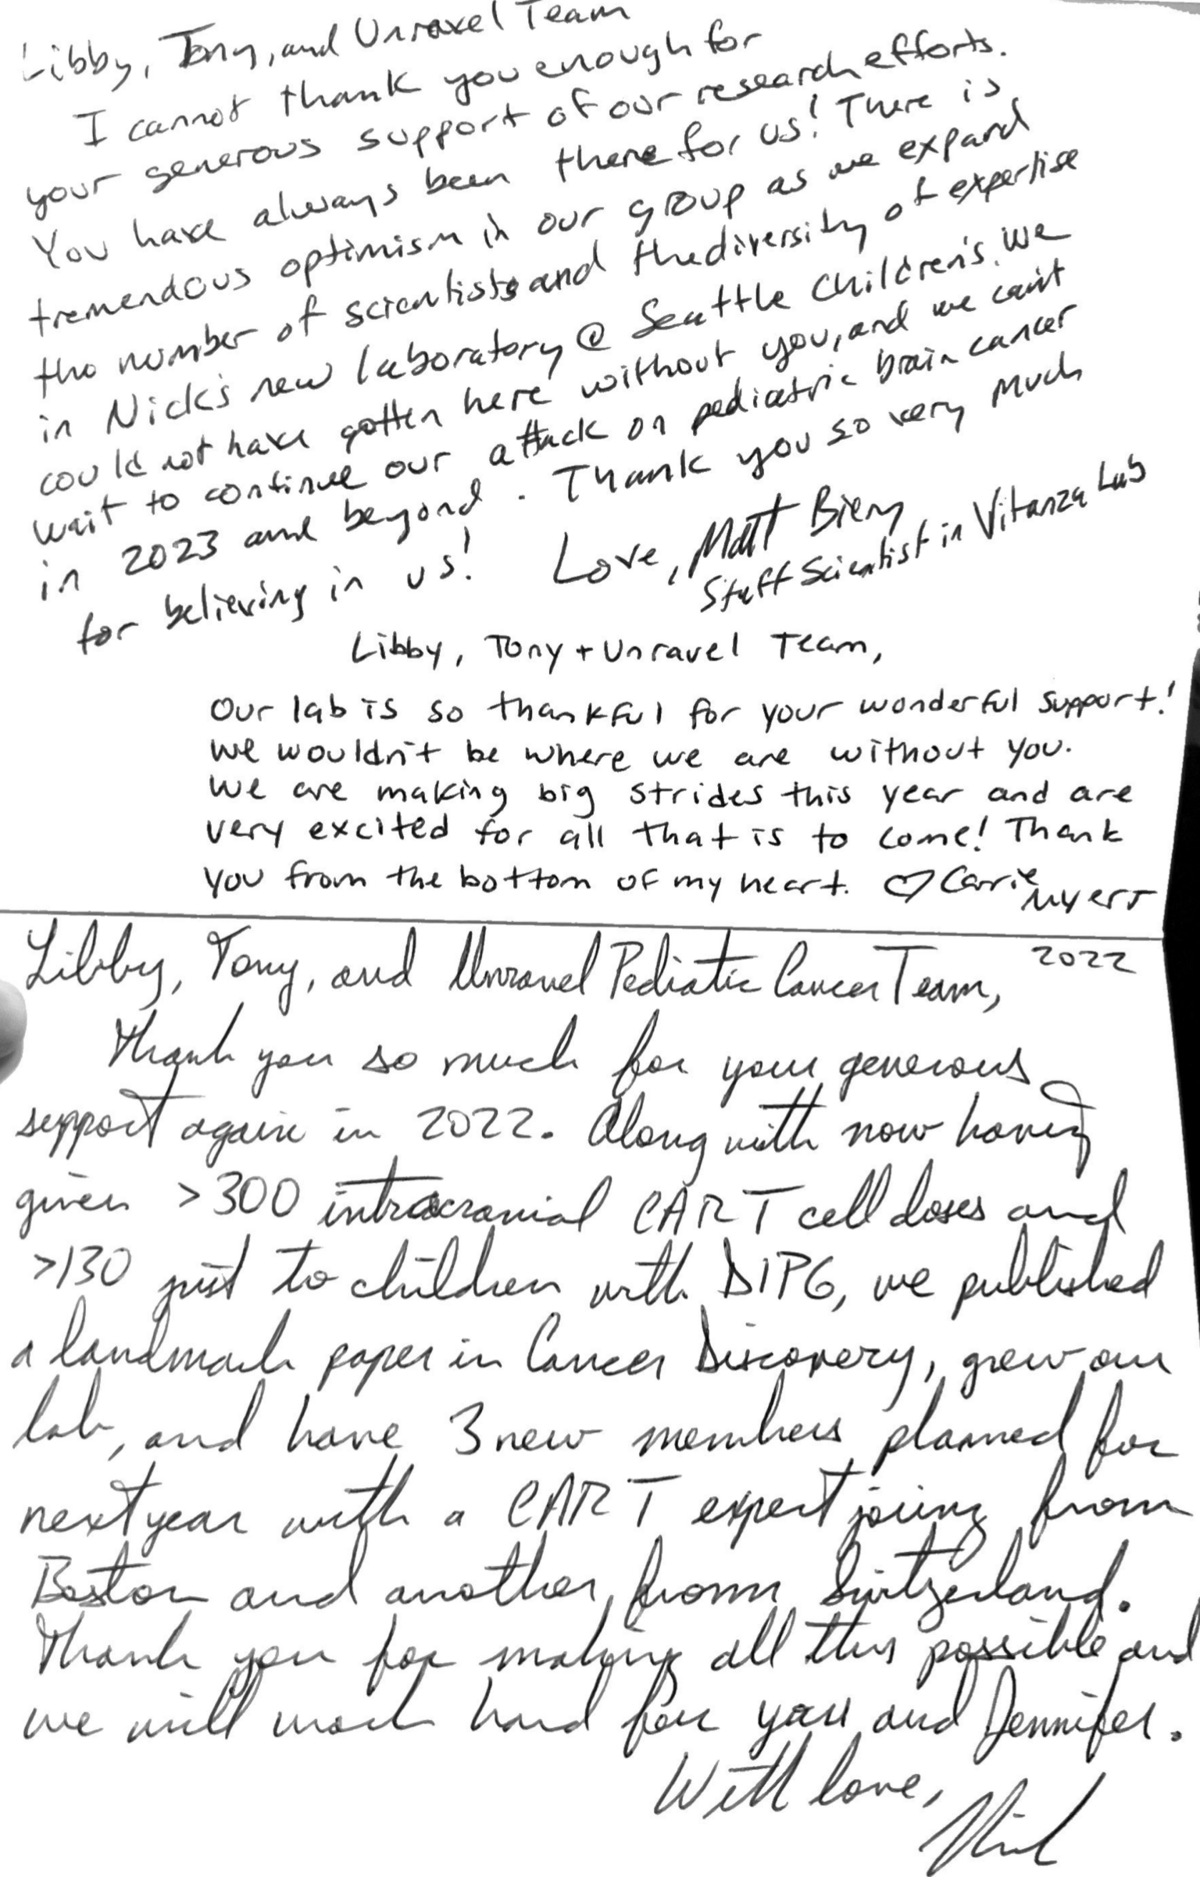 Libby, Tony, and Unravel Team
I cannot thank you enough for
your generous support of our research efforts.
You have always been there for us! There is
tremendous optimism in our group as we expand
the number of scientists and the diversity of expertise
in Nick's new laboratory @ Seattle Children's. We
could not have gotten here without you, and we can't
wait to continue our attack on pediatric brain cancer
in 2023 and beyond. Thank you so very much
for believing in us! Love, Matt Biery
Staff Scientist in Vitanza Lab
Libby, Tony + Unravel Team,
Our lab is so thankful for your wonderful support!
We wouldn't be where we are without you.
We are making big strides this year and are
very excited for all that is to come! Thank
you from the bottom of my heart. ♡ Carrie
Myers
2022
Libby, Tony, and Unravel Pediatric Cancer Team,
Thank you so much for your generous
support again in 2022. Along with now having
given >300 intracranial CAR T cell doses and
>130 just to children with DIPG, we published
a landmark paper in Cancer Discovery, grew our
lab, and have 3 new members planned for
next year with a CAR T expert joining from
Boston and another from Switzerland.
Thank you for making all this possible and
we will work hard for you and Jennifer.
With love,
Nick